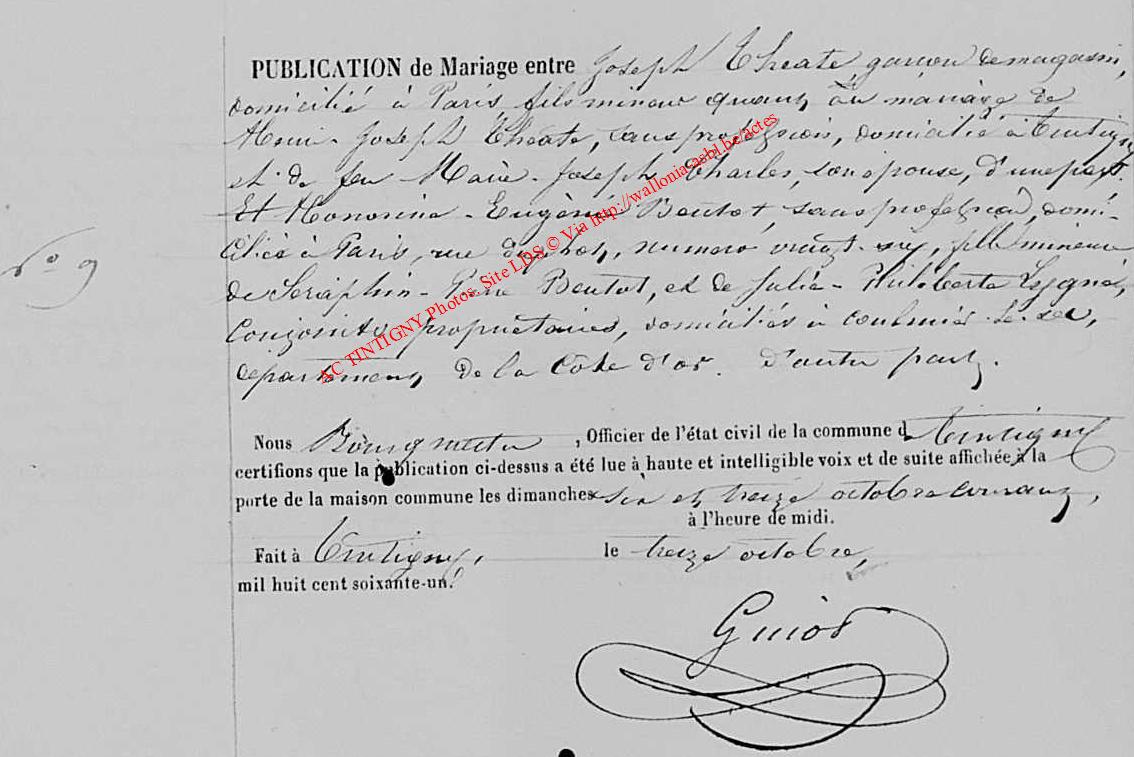 PUBLICATION de Mariage entre Joseph Theate garçon de magasin,
domicilié à Paris fils mineur quant au mariage de
Henri-Joseph Theate, sans profession, domicilié à Tintigny
et de feu Marie-Joseph Charles, son épouse, d'une part.
Et Honorine-Eugènie Beutot, sans profession, domi-
ciliée à Paris, rue numéro vingt-six, fille mineure
de Séraphin- Beutot, et de Julia-
Conjoints propriétaires, domiciliés à Coulmier-le-sec,
département de la Côte d'or. D'autre part.
N° 9
AC TINTIGNY Photos, Site LDS © Via http://wallonia-asbl.be/actes
Nous Bourgmestre, Officier de l'état civil de la commune d Tintigny
certifions que la publication ci-dessus a été lue à haute et intelligible voix et de suite affichée à la
porte de la maison commune les dimanches six et treize octobre courant,
à l'heure de midi.
Fait à Tintigny, le treize octobre,
mil huit cent soixante-un.
Guiot